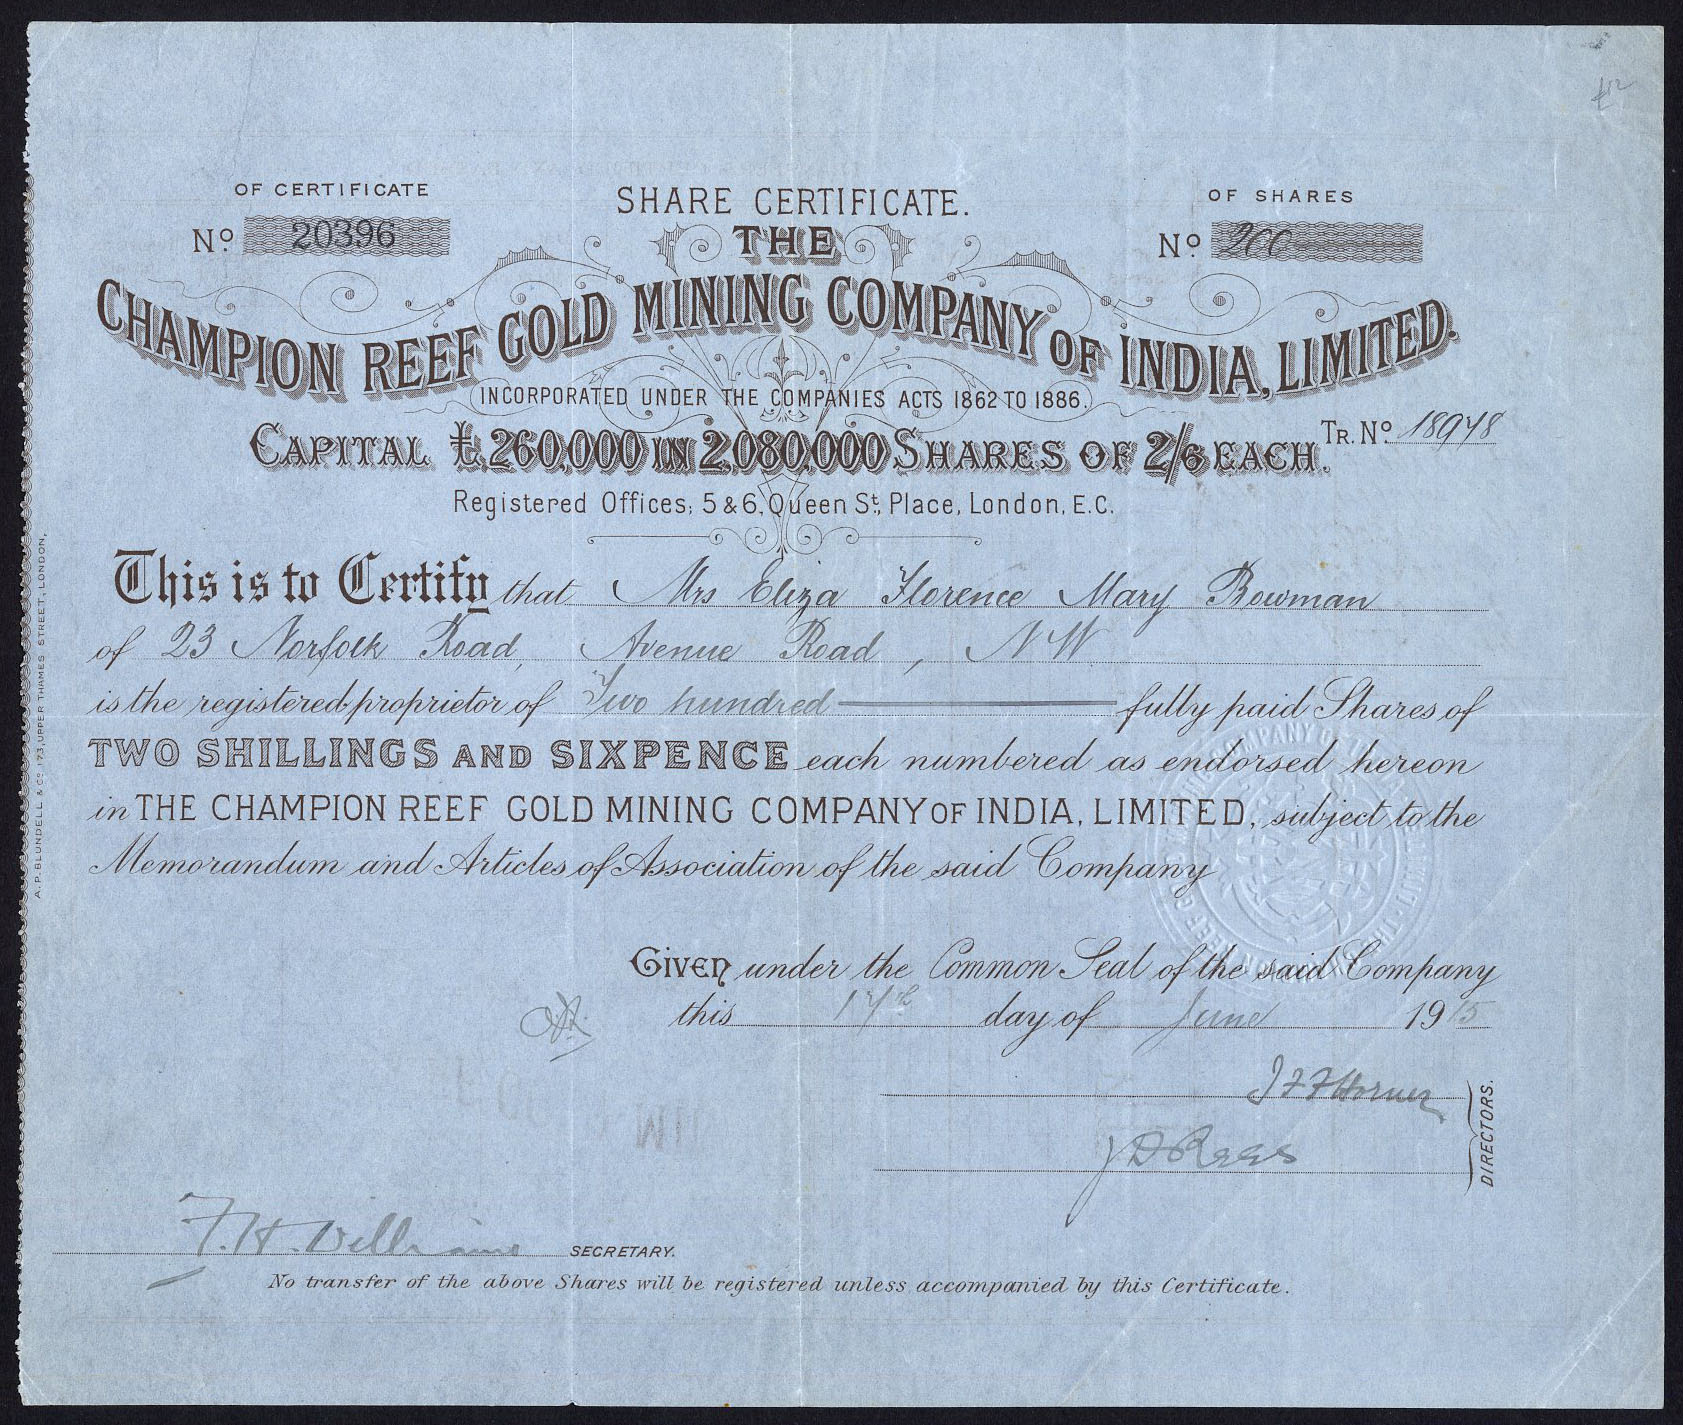 £12
OF CERTIFICATE
SHARE CERTIFICATE.
OF SHARES
No. 20396
No. 200
THE
CHAMPION REEF GOLD MINING COMPANY OF INDIA, LIMITED.
INCORPORATED UNDER THE COMPANIES ACTS 1862 TO 1886.
CAPITAL £260,000 IN 2,080,000 SHARES OF 2/6 EACH.
TR. No. 18948
Registered Offices; 5 & 6, Queen St., Place, London, E.C.
This is to Certify that Mrs Eliza Florence Mary Bowman
of 23 Norfolk Road, Avenue Road, NW
is the registered proprietor of Two hundred fully paid Shares of
TWO SHILLINGS AND SIXPENCE each numbered as endorsed hereon
in THE CHAMPION REEF GOLD MINING COMPANY OF INDIA, LIMITED, subject to the
Memorandum and Articles of Association of the said Company
Given under the Common Seal of the said Company
this 17th day of June 1915
J F F Horner
J D Rees
DIRECTORS.
F. H. Williams SECRETARY.
No transfer of the above Shares will be registered unless accompanied by this Certificate.
A. P. BLUNDELL & Co. 173, UPPER THAMES STREET, LONDON.